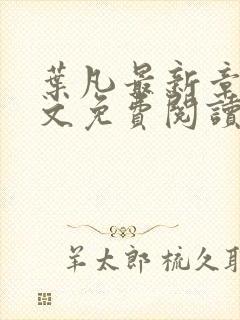 葉凡最新章
文免費閱讀
羊太郎 梳久耶